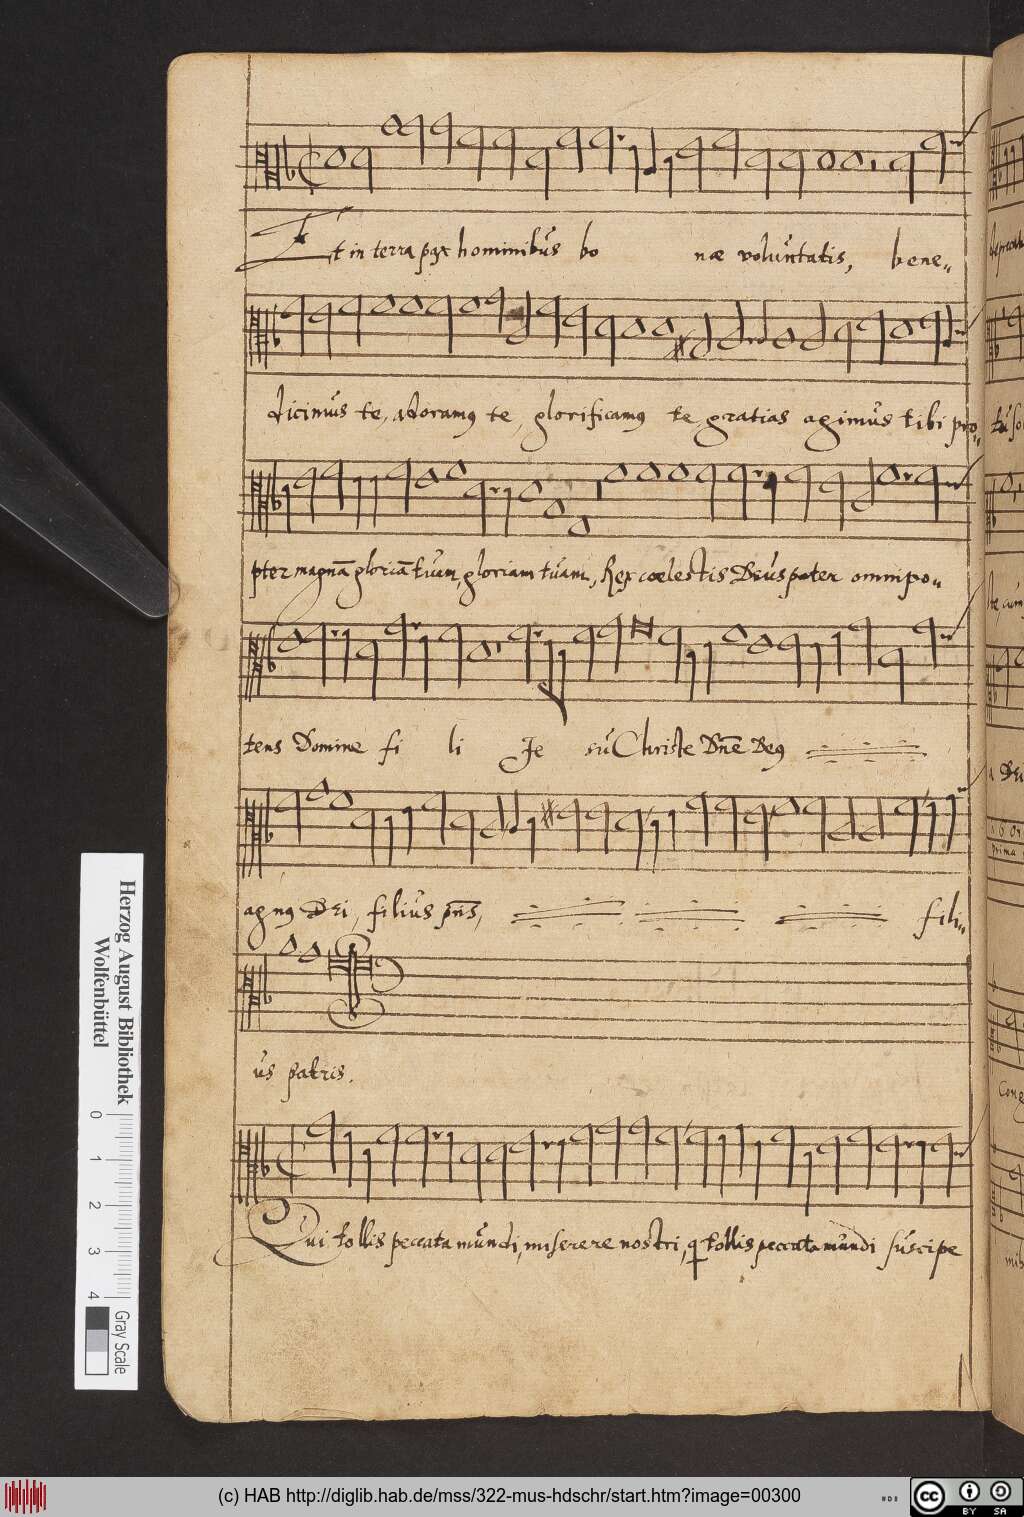 Et in terra pax hominibus bo nae voluntatis, bene„
dicimus te, adoramus te, glorificamus te, gratias agimus tibi pro„
pter magnã gloriã tuam, gloriam tuam, Rex coelestis Deus pater omnipo„
tens Domine fi li Je su Christe Dñe Deus
agnus Dei, filius pris, fili„
us patris.
Qui tollis peccata mundi, miserere nostri, q tollis peccata mundi suscipe
Herzog August Bibliothek
Wolfenbüttel
0 1 2 3 4
Gray Scale
(c) HAB http://diglib.hab.de/mss/322-mus-hdschr/start.htm?image=00300
cc BY SA